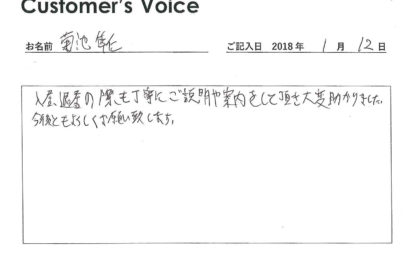 Customer's Voice
お名前 菊池 ご記入日 2018 年 1 月 12 日
入居、退去の際も丁寧にご説明や案内をして頂き大変助かりました。
今後ともよろしくお願い致します。